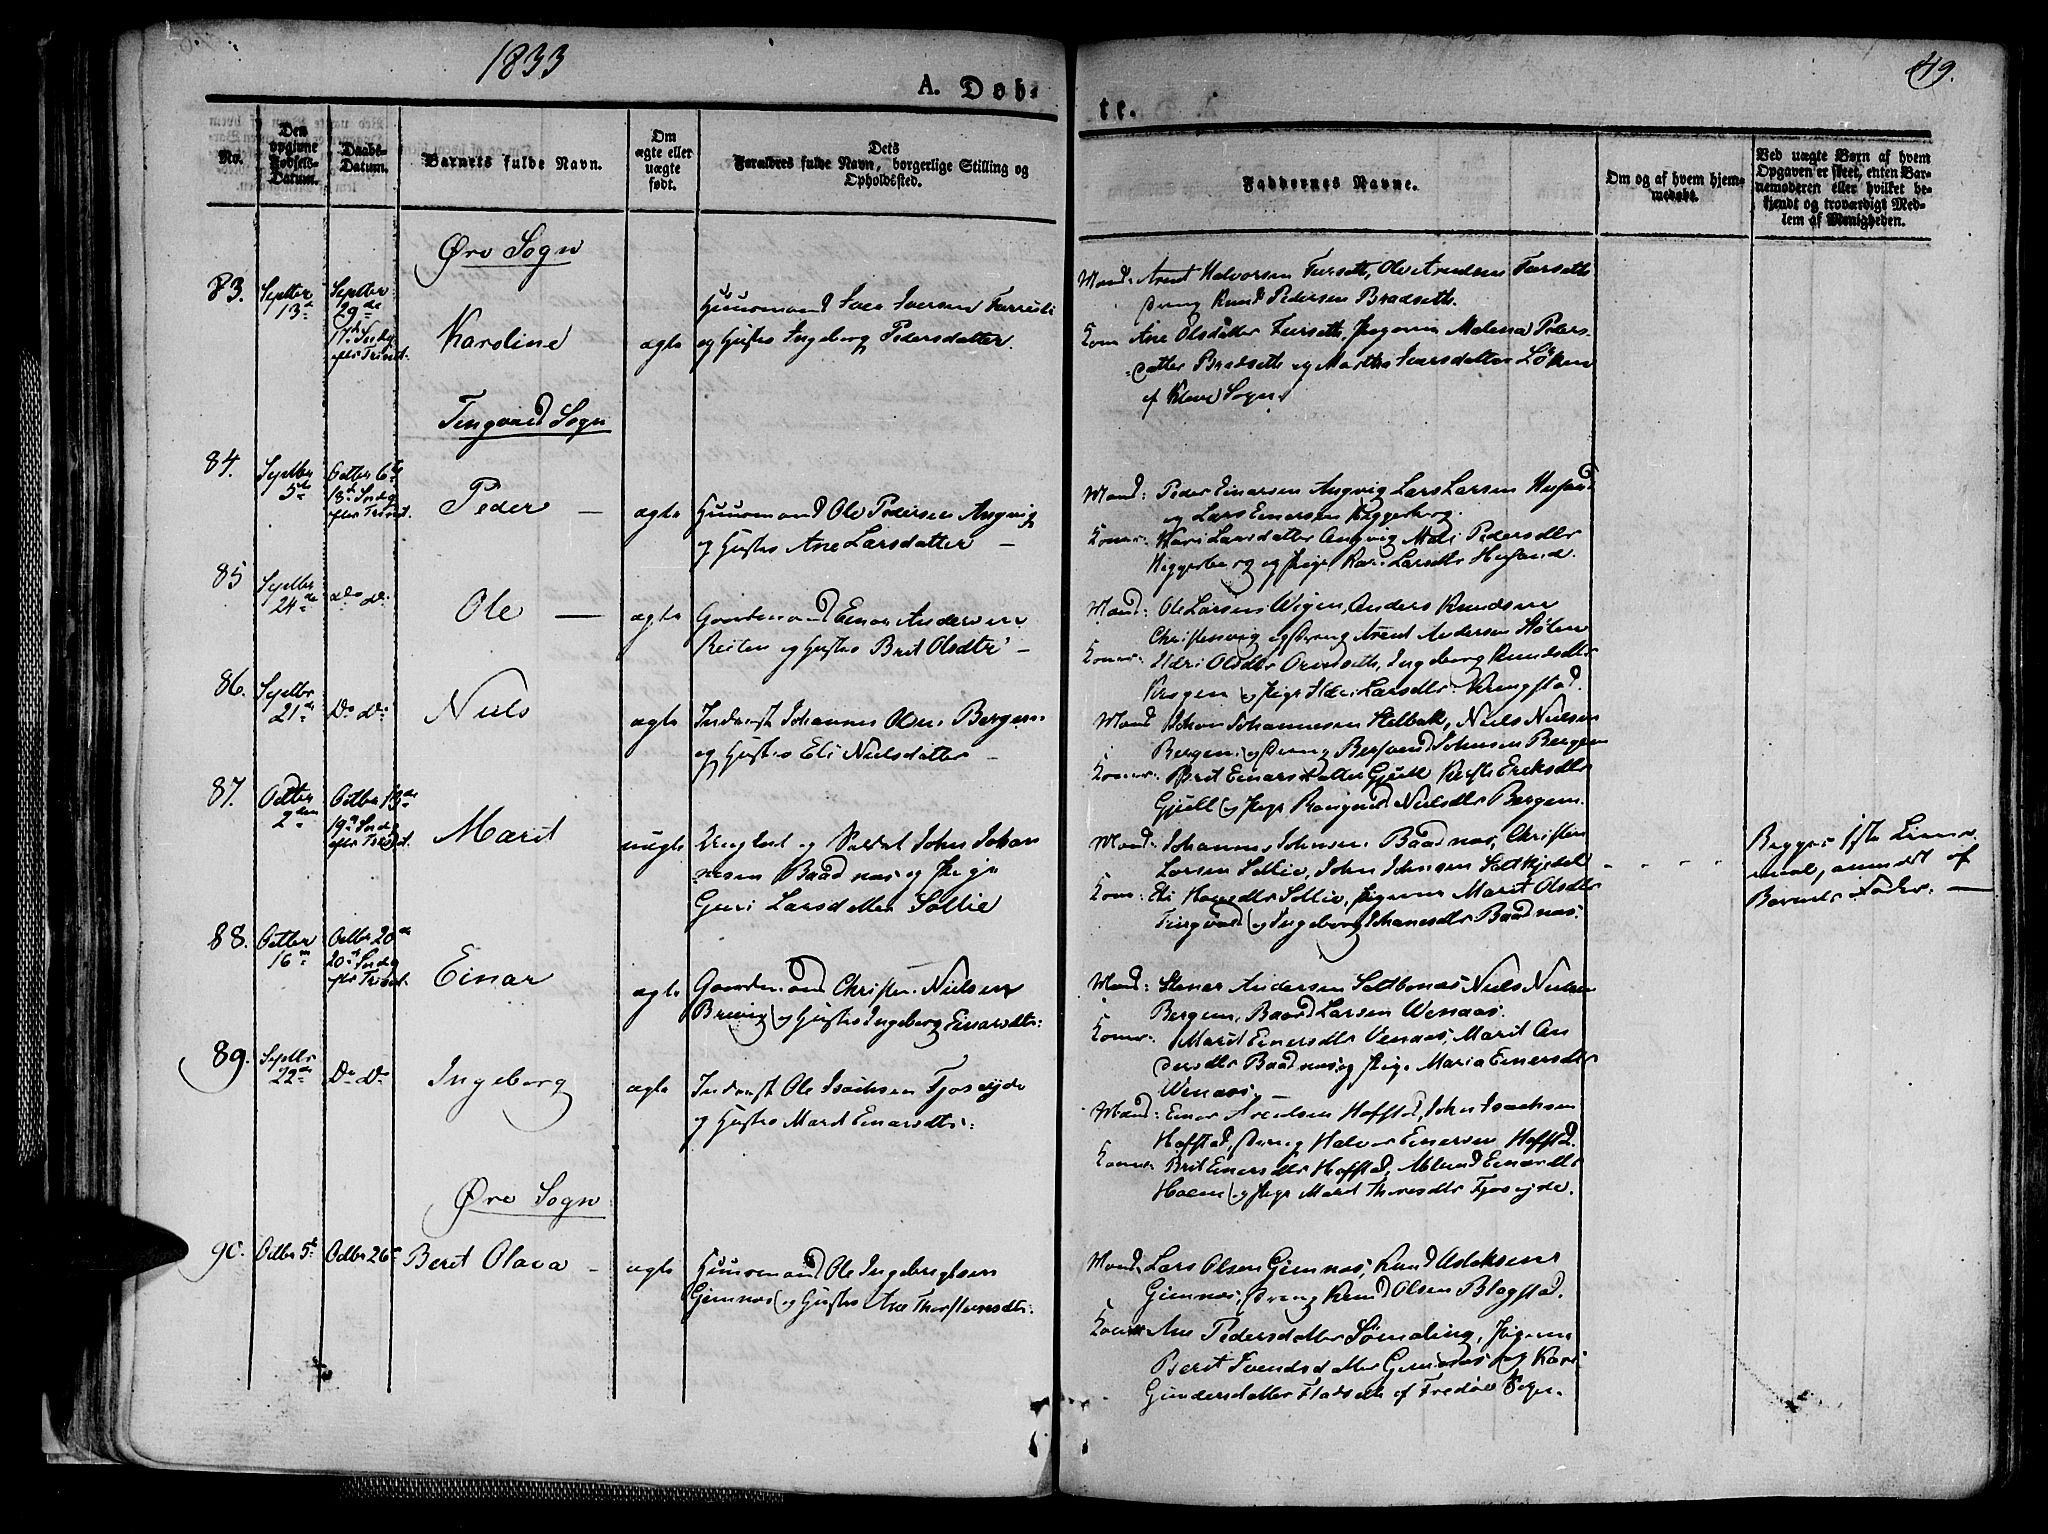 1833
49.
A. Døb-
te.
No.
Den
opgivne
Fødsels-
Datum.
Daabs-
Datum.
Barnets fulde Navn.
Om
ægte eller
uægte
født.
Dets
Forældres fulde Navn, borgerlige Stilling og
Opholdssted.
Faddernes Navne.
Om og af hvem hjem-
medøbt.
Ved uægte Børn af hvem
Opgaven er skeet, enten Bar-
nemoderen eller hvilket be-
kjendt og troværdigt Med-
lem af Menigheden.
Øre Sogn
83.
Septbr
13de
Septbr
29de
17de Sødg
efter Trinit.
Karoline
ægte
Huusmand Iver Iversen
og Hustro Ingeborg Pedersdatter.
Mænd: Arent Halvorsen Furseth, Ole Arentsen Furseth
Dreng Knud Pedersen Bradseth.
Koner Ane Olsdatter Furseth, Pigerne Malena Peders-
datter Bradseth og Martha Iversdatter Løken
af Sogn
Tingvold Sogn
84.
Septbr
5te
Octbr 6te
18de Søndg
efter Trinit.
Peder —
ægte
Huusmand Ole Pedersen Angvig
og Hustro Ane Larsdatter —
Mænd: Peder Einersen Angvig Lars Larsen
og Lars Einersen
Koner: Kari Larsdatter Angvig Mali Pedersdtr
og Pige Kari Larsdtr
85
Septbr
24de
do do
Ole —
ægte
Gaardmand Einar Andersen
Reiten og Hustro Brit Olsdtr —
Mænd: Ole Larsen Wigen, Anders Knudsen
Christenvig og Dreng Arent Andersen
Koner: Olsdtr Ingeborg Knudsdtr
og Pige Larsdtr
86.
Septbr
21de
Do do
Niels
ægte
Inderst Johannes Olsen Bergem
og Hustro Eli Nielsdatter —
Mænd Johan Johannesen Niels Nielsen
Bergem og Dreng Johnsen Bergem
Koner: Brit Einarsdatter Gjull Eriksdtr
Gjull og Pige Rangnild Nielsdtr Bergem.
87.
Octbr
2den
Octbr 13de
19de Søndg
efter Trinit.
Marit
uægte
Ungkarl og Soldat John Johan-
nesen Baadnæs og Pige
Guri Larsdatter Sollie
Mænd: Johannes Johnsen Baadnæs, Christen
Larsen Sollie, John Johnsen
Kone: Eli Sollie, Pigerne Marit Olsdtr
Tingvold og Ingeborg Johanesdtr Baadnæs.
Begges 1ste Leier-
maal, anmeldt af
Barnets Fader. —
88.
Octbr
16de
Octbr 20de
20de Søndg
efter Trinit.
Einar
ægte
Gaardmand Christen Nielsen
Brevig og Hustro Ingeborg Einarsdtr:
Mænd: Stener Andersen Saltbonæs Niels Nielsen
Bergem, Baard Larsen Wenaas.
Koner: Marit Einersdtr Venaas, Marit An-
dersdtr Baadnæs og Pige Maria Einersdtr
Wenaas. —
89.
Septbr
22de
Do do
Ingeborg
ægte
Inderst Ole Isachsen Fjosejde
og Hustro Marit Einarsdtr:
Mænd: Einar Arentsen Hofstad, John Isachsen
Hofstad, Dreng Halvor Einersen Hofstd.
Koner: Brit Einersdtr Hofstad, Einersdtr
Holm og Pige Marit Fjosejde.
Øre Sogn
90.
Octbr 5te
Octbr 26de
Beret Olava —
ægte
Huusmand Ole Ingebrigtsen
Gimnæs og Hustro Ane Thorsteensdtr:
Mænd, Lars Olsen Gimnæs, Knud Aslaksen
Gimnæs, Dreng Knud Olsen Blagstad.
Koner Ane Pedersdatter Sømeling, Pigerne
Berit Svendsdatter Gimnæs og Kari
Gundersdatter Fladsæth af Fredøe Sogn.